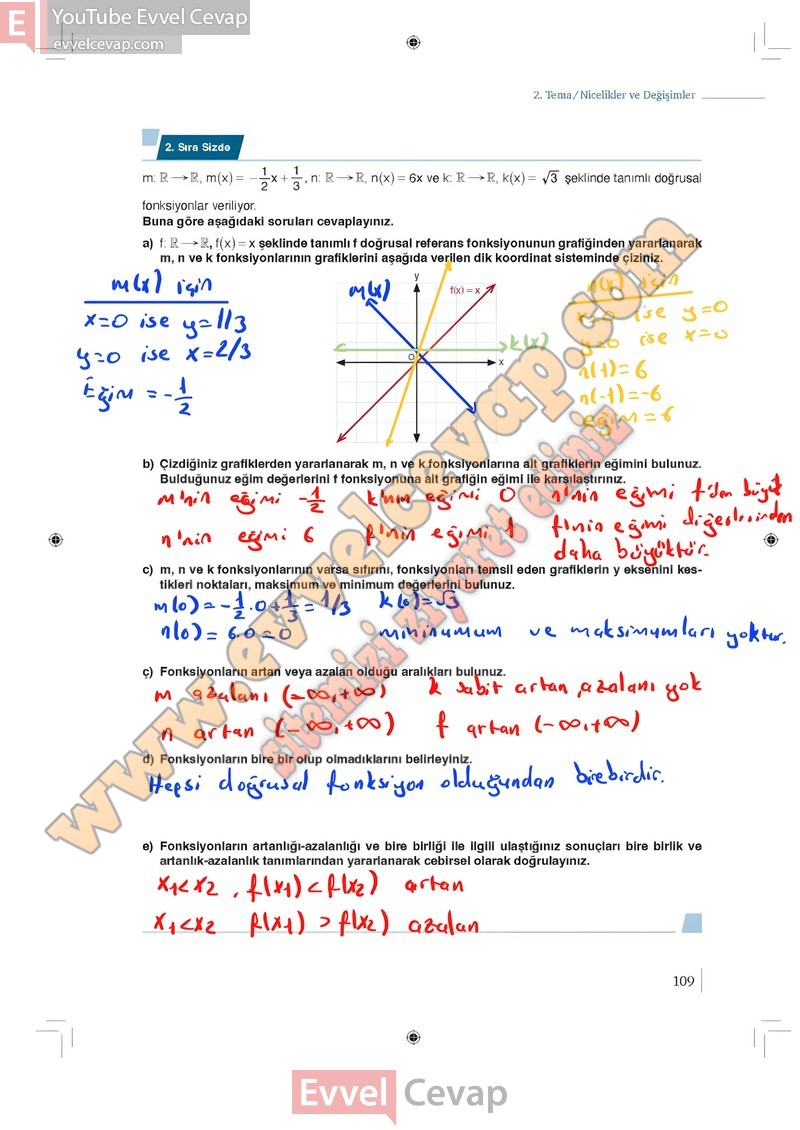 YouTube Evvel Cevap
evvelcevap.com
2. Tema/Nicelikler ve Değişimler
2. Sıra Sizde
m: ℝ→ℝ, m(x) = -1/2x + 1/3, n: ℝ→ℝ, n(x) = 6x ve k: ℝ→ℝ, k(x) = √3 şeklinde tanımlı doğrusal
fonksiyonlar veriliyor.
Buna göre aşağıdaki soruları cevaplayınız.
a) f: ℝ→ℝ, f(x) = x şeklinde tanımlı f doğrusal referans fonksiyonunun grafiğinden yararlanarak
m, n ve k fonksiyonlarının grafiklerini aşağıda verilen dik koordinat sisteminde çiziniz.
m(x) için
x=0 ise y=1/3
y=0 ise x=2/3
Eğim = -1/2
y
f(x) = x
m(x)
k(x)
O
x
n(x) için
x=0 ise y=0
y=0 ise x=0
n(1)=6
n(-1)=-6
eğim=6
b) Çizdiğiniz grafiklerden yararlanarak m, n ve k fonksiyonlarına ait grafiklerin eğimini bulunuz.
Bulduğunuz eğim değerlerini f fonksiyonuna ait grafiğin eğimi ile karşılaştırınız.
m'nin eğimi -1/2 k'nın eğimi 0 n'nin eğimi f'den büyük
n'nin eğimi 6 f'nin eğimi 1 f'nin eğimi diğerlerinden
daha büyüktür.
c) m, n ve k fonksiyonlarının varsa sıfırını, fonksiyonları temsil eden grafiklerin y eksenini kes-
tikleri noktaları, maksimum ve minimum değerlerini bulunuz.
m(0)=-1/2.0+1/3=1/3 k(0)=√3
n(0)=6.0=0 mininumum ve maksimumları yoktur.
ç) Fonksiyonların artan veya azalan olduğu aralıkları bulunuz.
m azalanı (-∞,+∞) k sabit artan, azalanı yok
n artan (-∞,+∞) f artan (-∞,+∞)
d) Fonksiyonların bire bir olup olmadıklarını belirleyiniz.
Hepsi doğrusal fonksiyon olduğundan birebirdir.
e) Fonksiyonların artanlığı-azalanlığı ve bire birliği ile ilgili ulaştığınız sonuçları bire birlik ve
artanlık-azalanlık tanımlarından yararlanarak cebirsel olarak doğrulayınız.
x1<x2, f(x1)<f(x2) artan
x1<x2 f(x1)>f(x2) azalan
109
www.evvelcevap.com
sitemizi ziyaret ediniz
Evvel Cevap